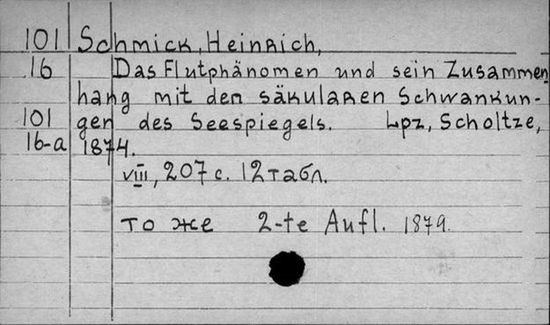 101 Schmick, Heinrich,
16 Das Flutphänomen und sein Zusammen
hang mit den säkularen Schwankun-
101 gen des Seespiegels. Lpz, Scholtze,
16-a 1874.
VIII, 207 с. 12 табл.
то же 2-te Aufl. 1879.